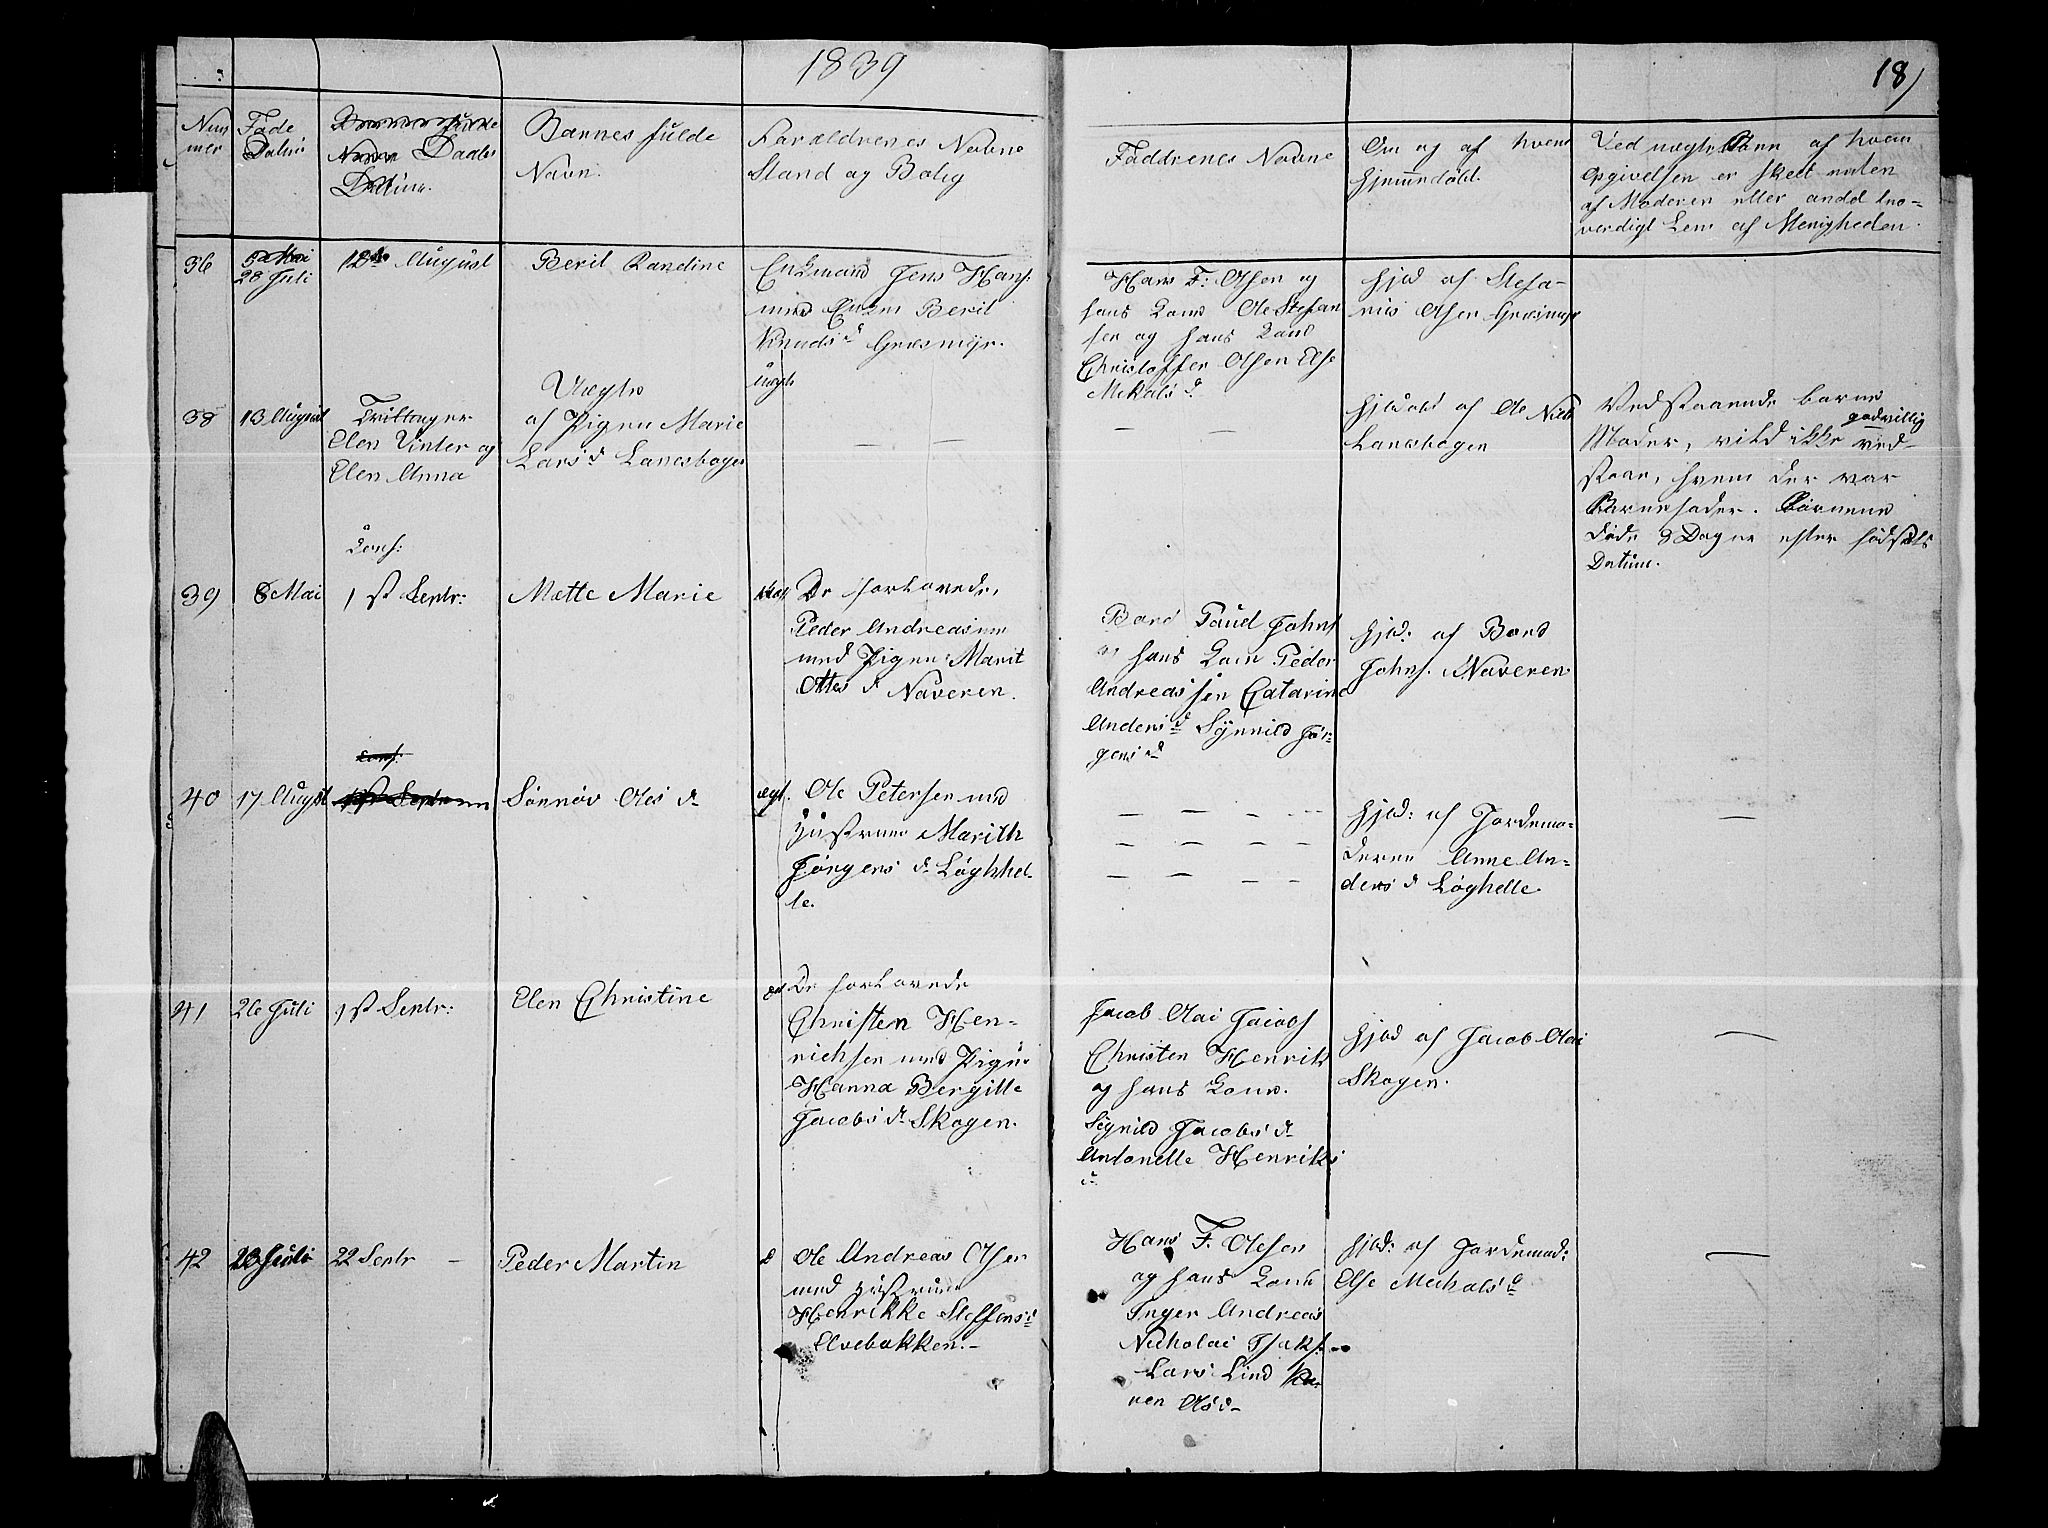 1839
18)
Num
mer
Føde
Datum
Daabs
Datum.
Barnes fulde
Navn.
Foræeldrenes Navne
Stand og Bolig
Faddrenes Navne
Om og af hvem
hjemmedøbt.
Ved uægte Børn af hvem
Opgivelsen er skeet enten
af Moderen eller andet tro-
verdigt Lem af Menigheden.
36
28 Juli
12 August
Berit Randine
Enkemand Jens Hans.
med Enken Berit
Knuds d Græsmyr.
Hans F: Olsen og
hans Kone Ole Stefan
sen og hans Kone
Christoffer Olsen Else
Mekals d
hjed af Stefa-
nus Olsen Græsmyr
38
13 August
Tvillinger
Elen Vinter og
Elen Anna
Uægte
af Pigen Marie
Lars d Lanesbogen
uægt
— —
— —
hjedøbt af Ole Niels
Lanesbogen
Vedstaaende barne
Moder, vild ikke godvillig ved-
staae, hvem der var
Barnefader. Børnene
døde 8 Dage efter fødsels
Datum.
39
8 Mai
Conf:
1st Septr:
Mette Marie
De forlovede,
Peder Andreassen
med Pigen Marit
Ottes d Naveren.
Bard Paul Johns
og hans Kone Peder
Andreassen Catarine
Anders d Synnild Jør-
gens d
hjed: af Bard
Johns. Naveren
40
17 August
Conf:
1st Septr
Sønnøv Oles d
ægt.
Ole Petersen med
Hustrue Marith
Jørgens d Løghhel-
le.
— — — —
— — — —
— — — —
hjed: af Jordemo-
deren Anne An-
ders d Løghelle
—
41
26 Juli
1st Septr:
Elen Christine
De forlovede
Christen Hen-
richsen med Pigen
Hanna Bergitte
Jacobs d Skogen.
Jacob Olai Jacobs
Christen Henrik
og hans Kone.
Signild Jacobs d
Antonette Henriks
d
hjed af Jacob Olai
Skogen.
—
42
23 Juli
22 Septr —
Peder Martin
Ole Andreas Olsen
med Hustrue
Henrikke Steffens d
Elvebakken. —
Hans F. Olesen
og hans Kone
Inger Andreas
Nicholai Isaks.
Lars Lind Ka-
ren Ols d
hjed: af Jordemod:
Else Mickals d
—